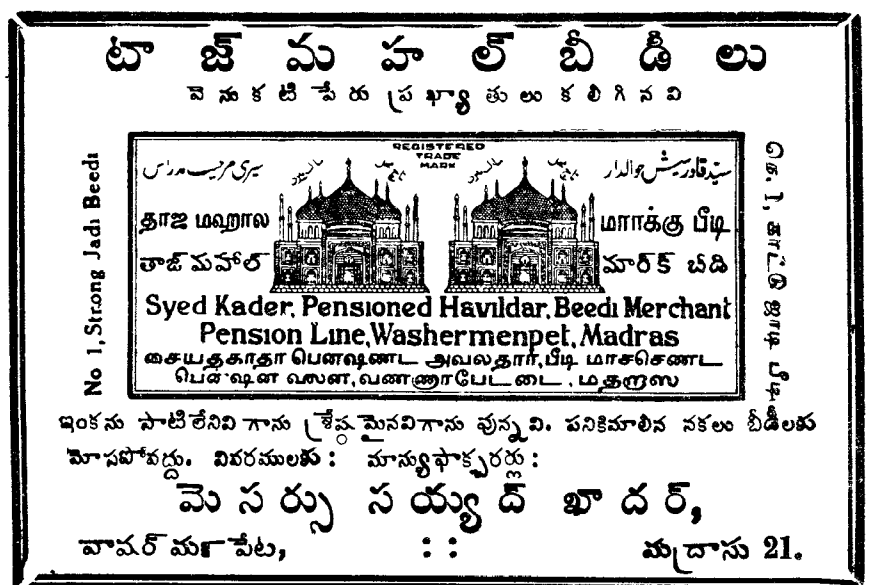 టాజ్ మహల్ బీడీలు
వెనుకటి పేరు ప్రఖ్యాతులు కలిగినవి
No 1, Strong Jadi Beedi
REGISTERED
TRADE
MARK
தாஜ மஹால
மாாக்கு பீடி
താജ് മഹാൽ
മാർക് ബീഡി
Syed Kader, Pensioned Havildar, Beedi Merchant
Pension Line, Washermenpet, Madras
சையதகாதா பென்ஷண்ட அவலதார், பீடி மாசசெண்ட
பென்ஷன லைன, வண்ணாபேட்டை, மதறாஸ
நெ. 1, காட்டு ஜாடி பீடி
ఇంకను సాటిలేనివి గాను శ్రేష్ఠమైనవిగాను వున్నవి. పనికిమాలిన నకలు బీడీలకు
మోసపోవద్దు. వివరములకు : మాన్యుఫాక్చరర్లు :
మెసర్సు సయ్యద్ ఖాదర్,
వాషర్ మణపేట, : : మద్రాసు 21.